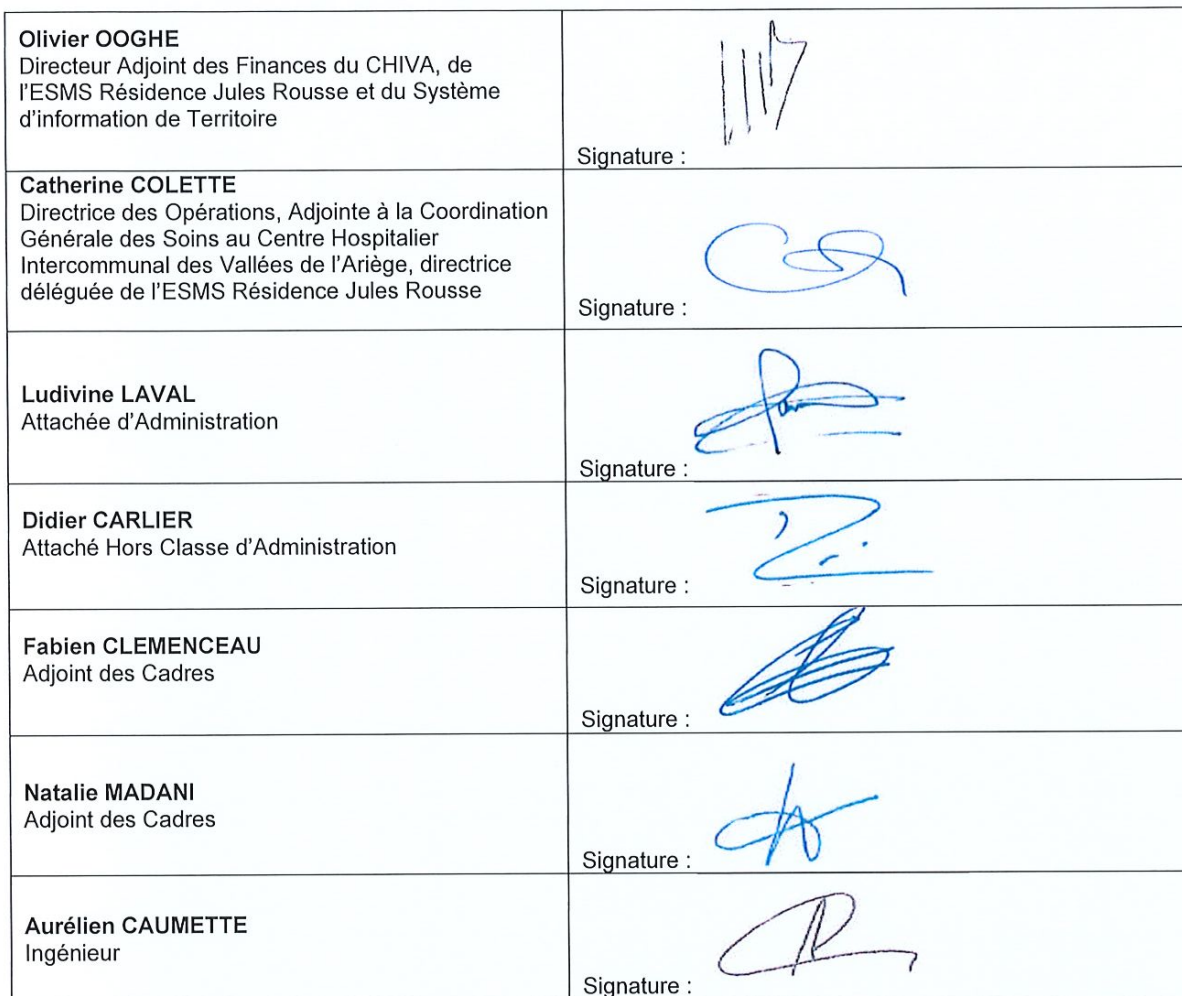 Olivier OOGHE
Directeur Adjoint des Finances du CHIVA, de
l'ESMS Résidence Jules Rousse et du Système
d'information de Territoire
Signature :
Catherine COLETTE
Directrice des Opérations, Adjointe à la Coordination
Générale des Soins au Centre Hospitalier
Intercommunal des Vallées de l'Ariège, directrice
déléguée de l'ESMS Résidence Jules Rousse
Signature :
Ludivine LAVAL
Attachée d'Administration
Signature :
Didier CARLIER
Attaché Hors Classe d'Administration
Signature :
Fabien CLEMENCEAU
Adjoint des Cadres
Signature :
Natalie MADANI
Adjoint des Cadres
Signature :
Aurélien CAUMETTE
Ingénieur
Signature :